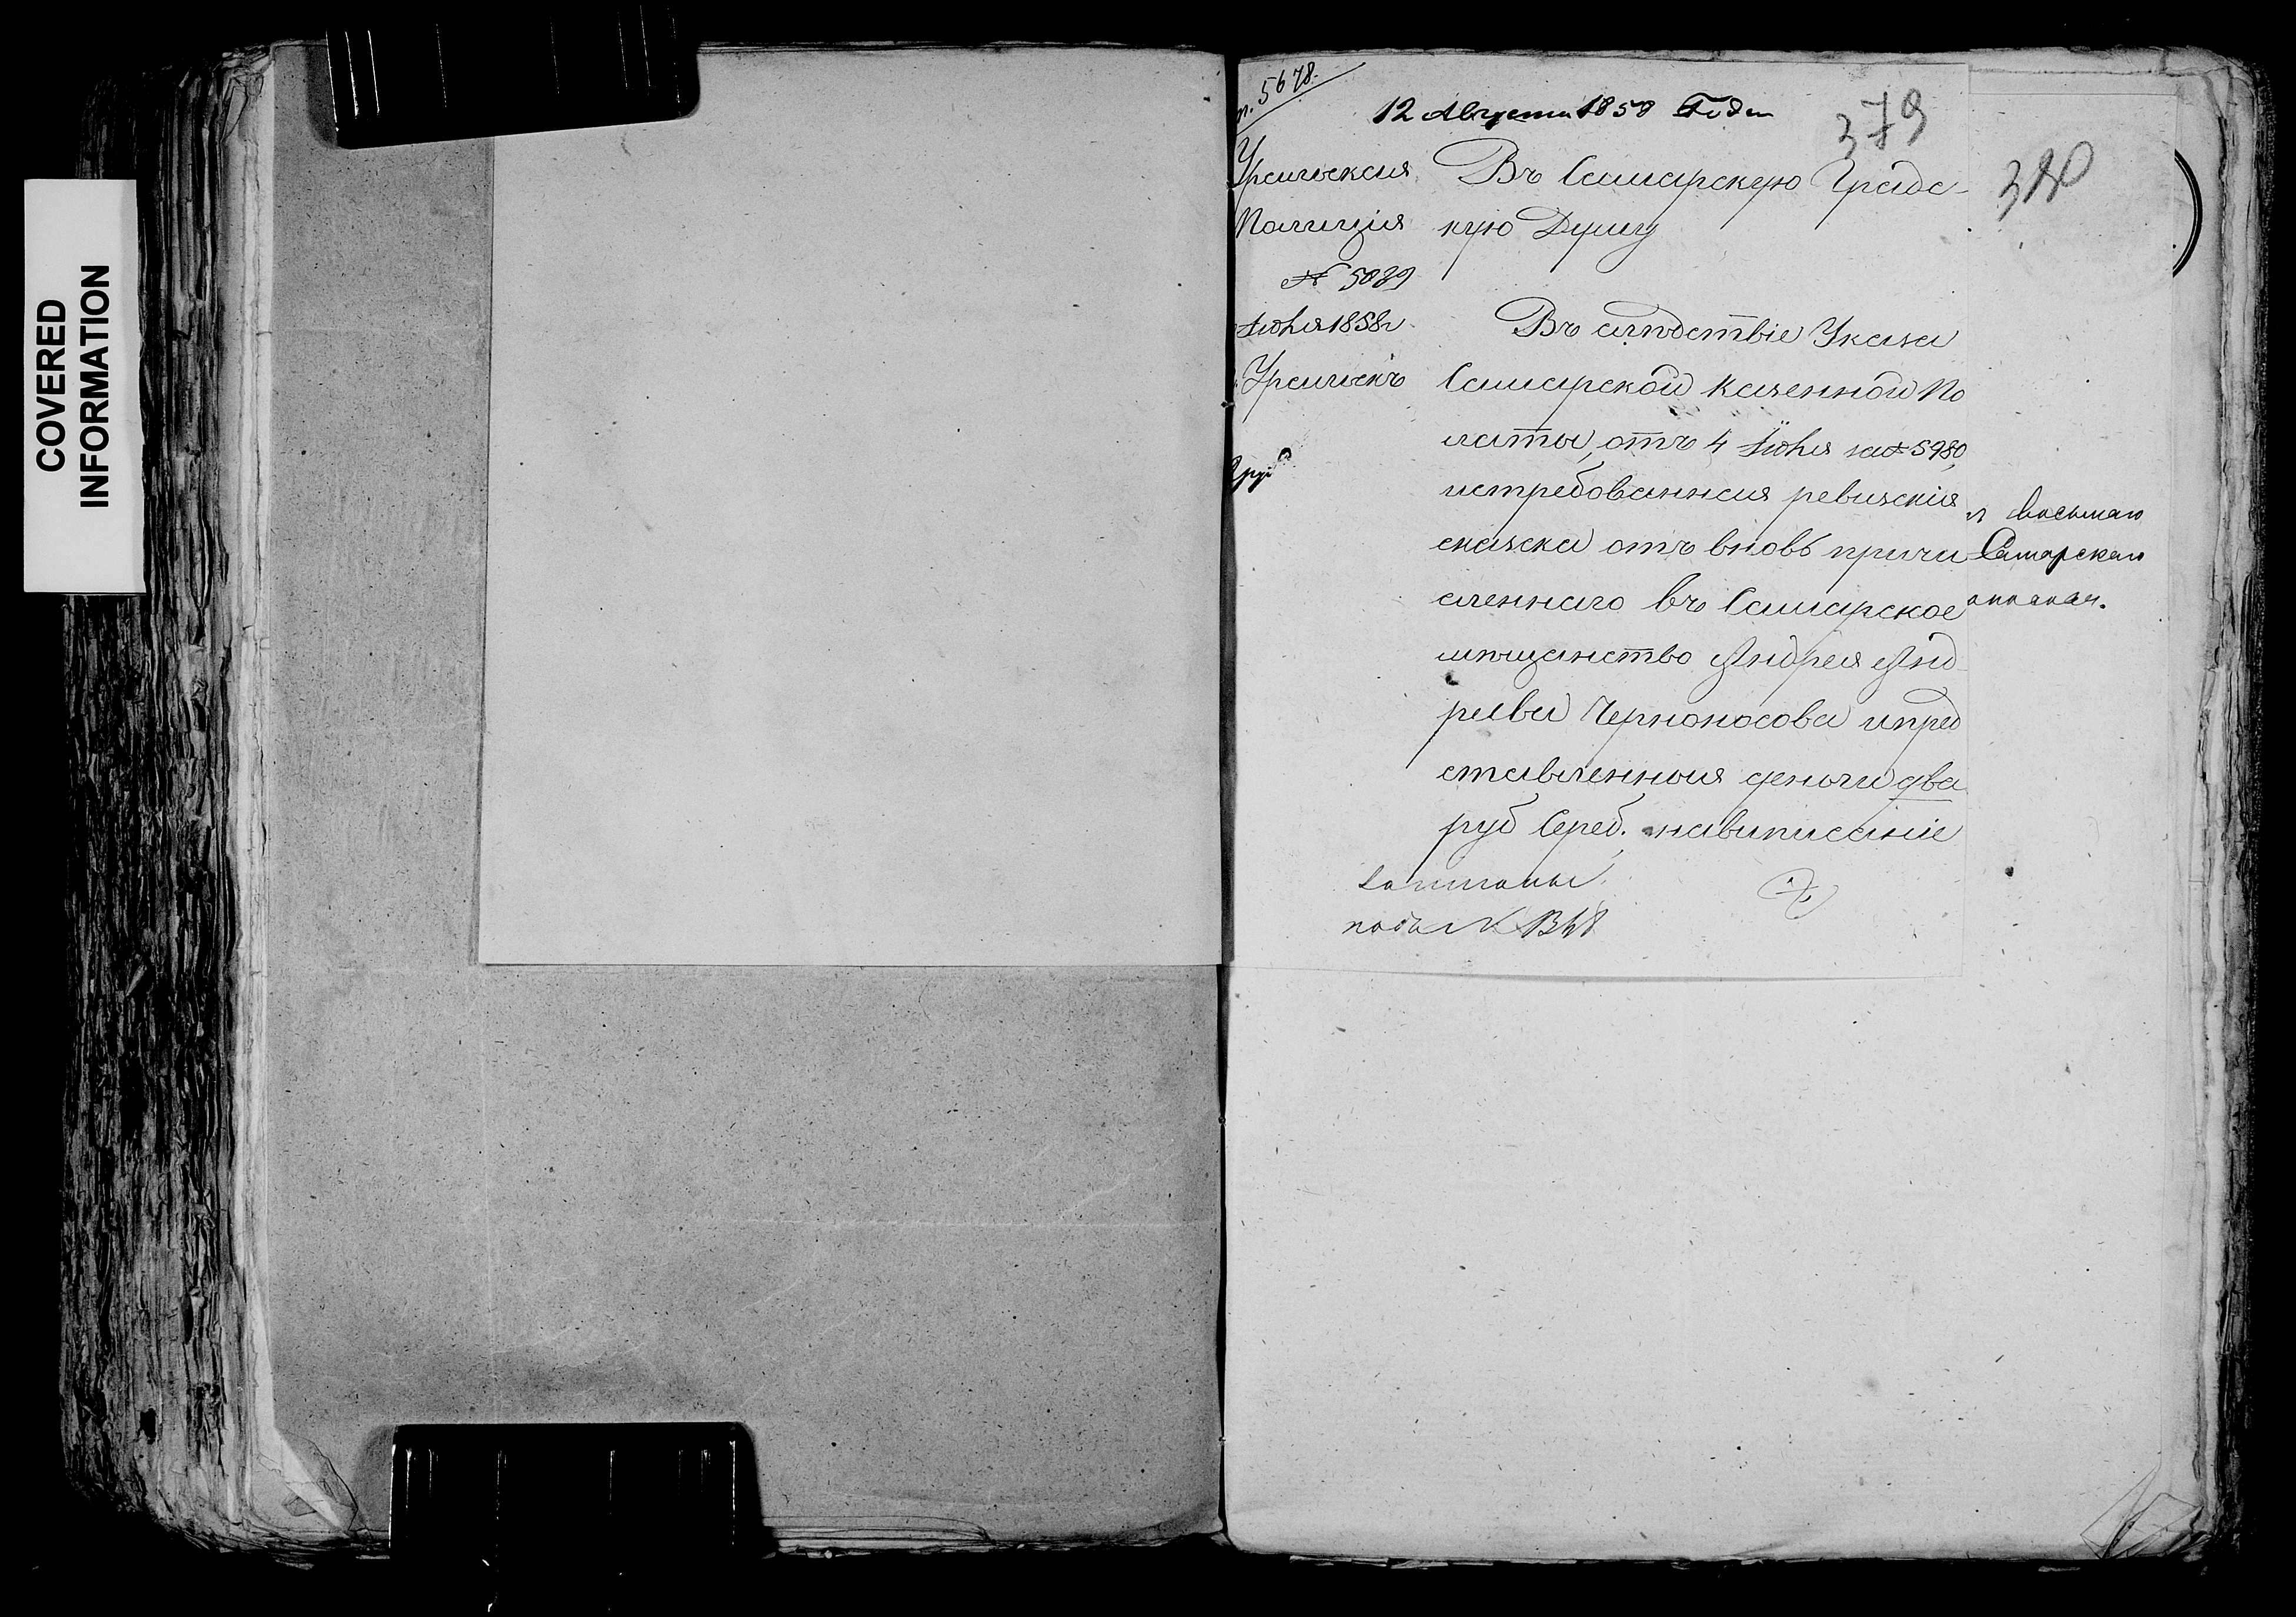 COVERED
INFORMATION
5678.
12 Августа 1858 Года
379
380
Уральская
Полиція
№ 5089
Іюня 1858 г
Уральскъ
Въ Самарскую Градс-
кую Думу
Въ слѣдствіе Указа
Самарской Казенной По
латы, отъ 4 Іюня за № 5980,
истребованная ревизкія
сказка отъ вновь причи
сленнаго въ Самарское
мѣщанство Андрея Анд
реева Черноносова и пред
ставленныя деньги два
руб Сереб. на выписаніе
восьмаго
Самарскаго